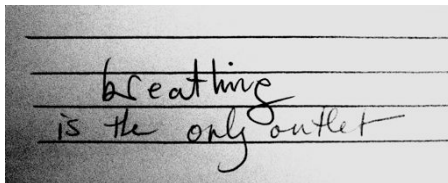 breathing
is the only outlet